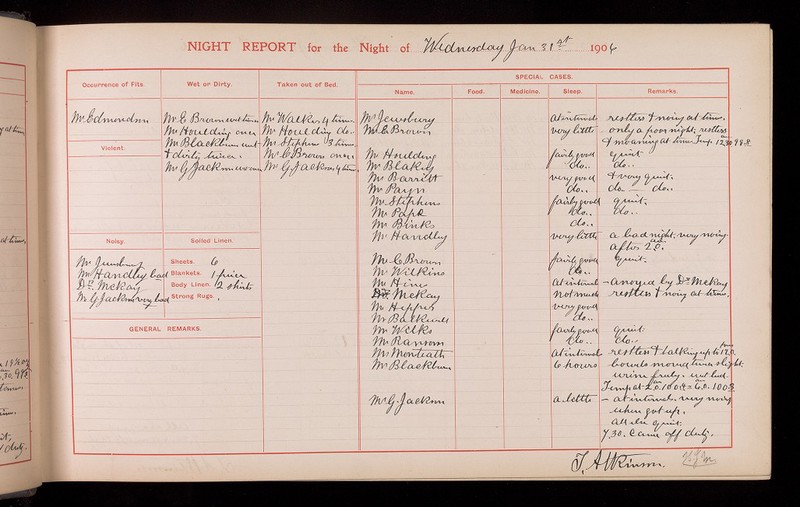 NIGHT REPORT for the Night of Wednesday Jan 31st 1906
SPECIAL CASES.
Occurrence of Fits. Wet or Dirty. Taken out of Bed. Name. Food. Medicine. Sleep. Remarks.
Mr Edmondson
Violent.
Mr E Brown wet
Mr Houlding once
Mr Blackburn wet
& dirty twice.
Mr G Jackson
Mr Walker 4 times
Mr Houlding do.
Mr Stephens 3 times
Mr E Brown once
Mr G Jackson 4 times
Noisy. Soiled Linen.
Mr Handley bad
Dr McKay
Mr G Jackson very bad
Sheets. 6
Blankets. 1 pair
Body Linen. 2 shirts
Strong Rugs.
GENERAL REMARKS.
Mr Jewsbury at intervals restless & noisy at times.
Mr E. Brown very little only a poor night, restless
& moaning at times Temp. 12.30 98.8
Mr Houlding fairly good quiet
Mr Blakey do.. do..
Mr Barritt very good & very quiet.
Mr Payn do.. do. — do..
Mr Stephens fairly good quiet.
Mr Pape do.. do..
Mr Binks do..
Mr Handley very little a bad night, very noisy
after 2.0.
Mr C. Brown fairly good quiet.
Mr Wilkins do..
Mr Hine at intervals annoyed by Dr McKay
Dr. McKay not much restless & noisy at times.
Mr very good
Mr do..
Mr Welks fairly good quiet
Mr Ransom do.. do..
Mr Monteath at intervals restless & talking up to 12.0.
Mr Blackburn 6 hours bowels moved twice slight,
urine freely. wet bed.
Temp at 2.0. 100.2 — 6.0. 100.2
Mr G. Jackson a little — at intervals. very noisy
when got up.
all else quiet.
7.30. Came off duty.
T. Atkinson.